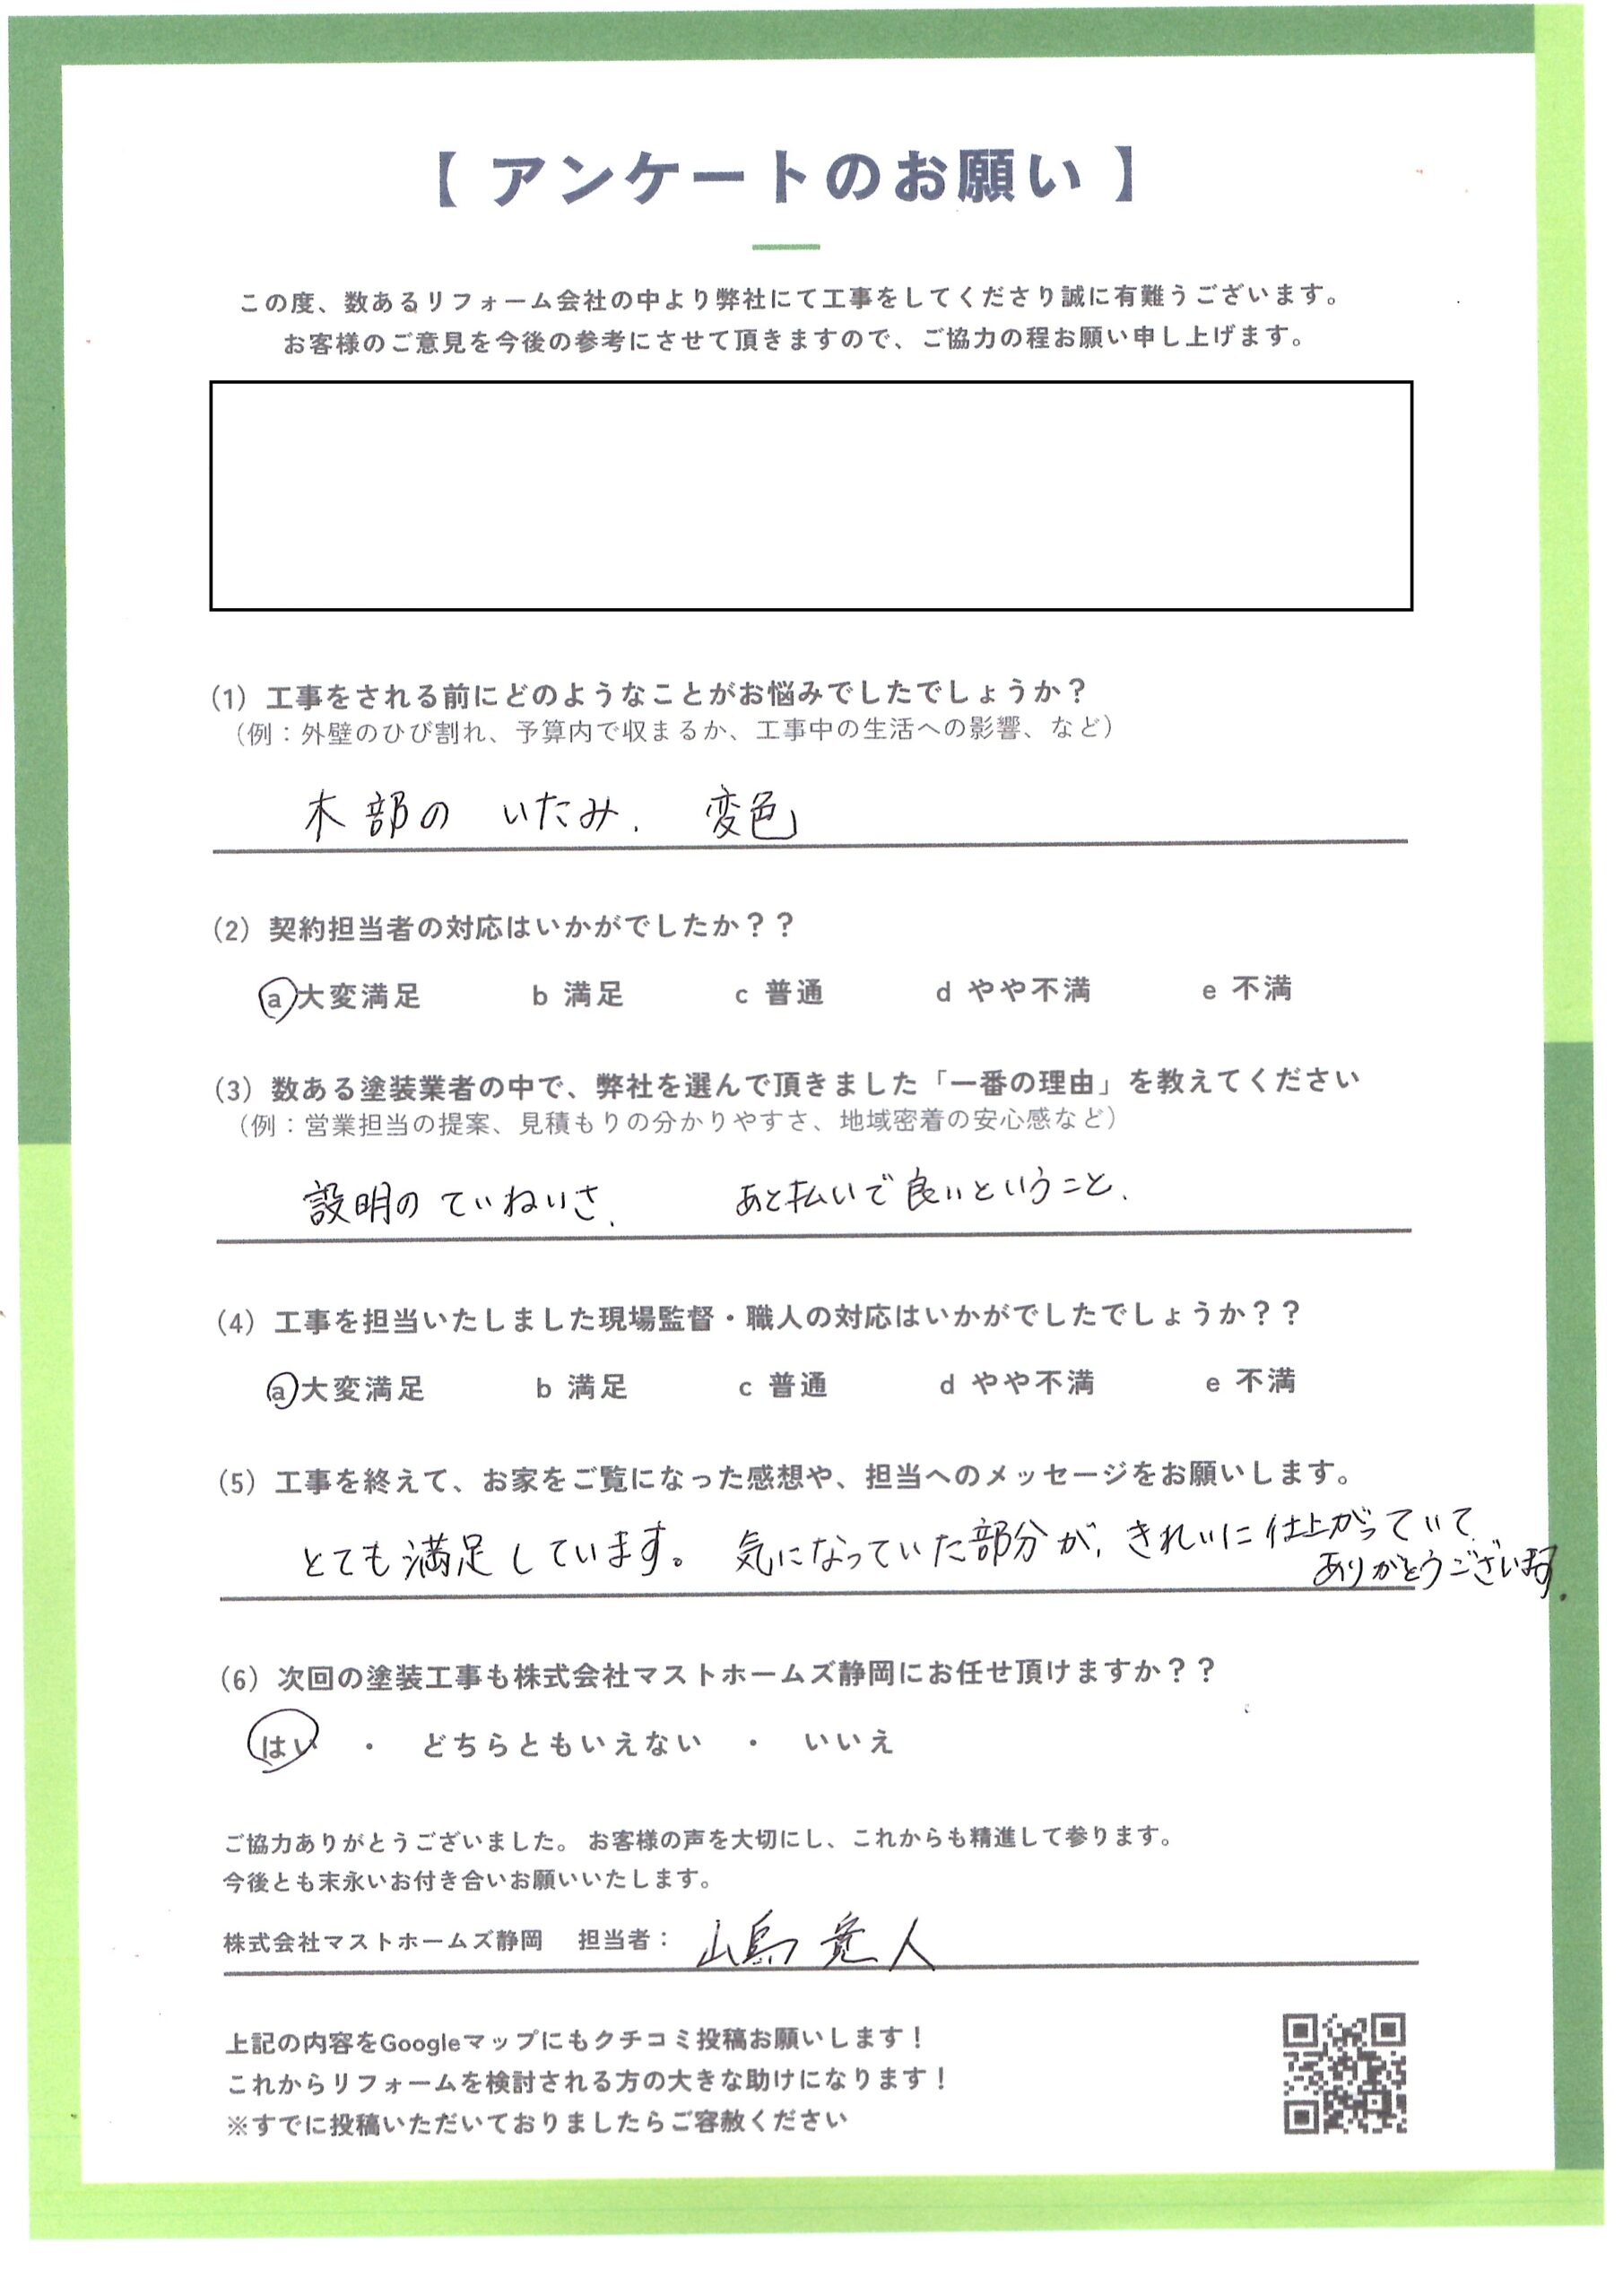 【 アンケートのお願い 】
この度、数あるリフォーム会社の中より弊社にて工事をしてくださり誠に有難うございます。
お客様のご意見を今後の参考にさせて頂きますので、ご協力の程お願い申し上げます。
(1) 工事をされる前にどのようなことがお悩みでしたでしょうか？
（例：外壁のひび割れ、予算内で収まるか、工事中の生活への影響、など）
木部の いたみ. 変色
(2) 契約担当者の対応はいかがでしたか？？
a 大変満足 b 満足 c 普通 d やや不満 e 不満
(3) 数ある塗装業者の中で、弊社を選んで頂きました「一番の理由」を教えてください
（例：営業担当の提案、見積もりの分かりやすさ、地域密着の安心感など）
設明の ていねいさ. あと払いで良いということ.
(4) 工事を担当いたしました現場監督・職人の対応はいかがでしたでしょうか？？
a 大変満足 b 満足 c 普通 d やや不満 e 不満
(5) 工事を終えて、お家をご覧になった感想や、担当へのメッセージをお願いします。
とても満足しています。 気になっていた部分が, きれいに仕上がっていて
ありがとうございます.
(6) 次回の塗装工事も株式会社マストホームズ静岡にお任せ頂けますか？？
はい ・ どちらともいえない ・ いいえ
ご協力ありがとうございました。 お客様の声を大切にし、これからも精進して参ります。
今後とも末永いお付き合いお願いいたします。
株式会社マストホームズ静岡 担当者： 山島 寛人
上記の内容をGoogleマップにもクチコミ投稿お願いします！
これからリフォームを検討される方の大きな助けになります！
※すでに投稿いただいておりましたらご容赦ください